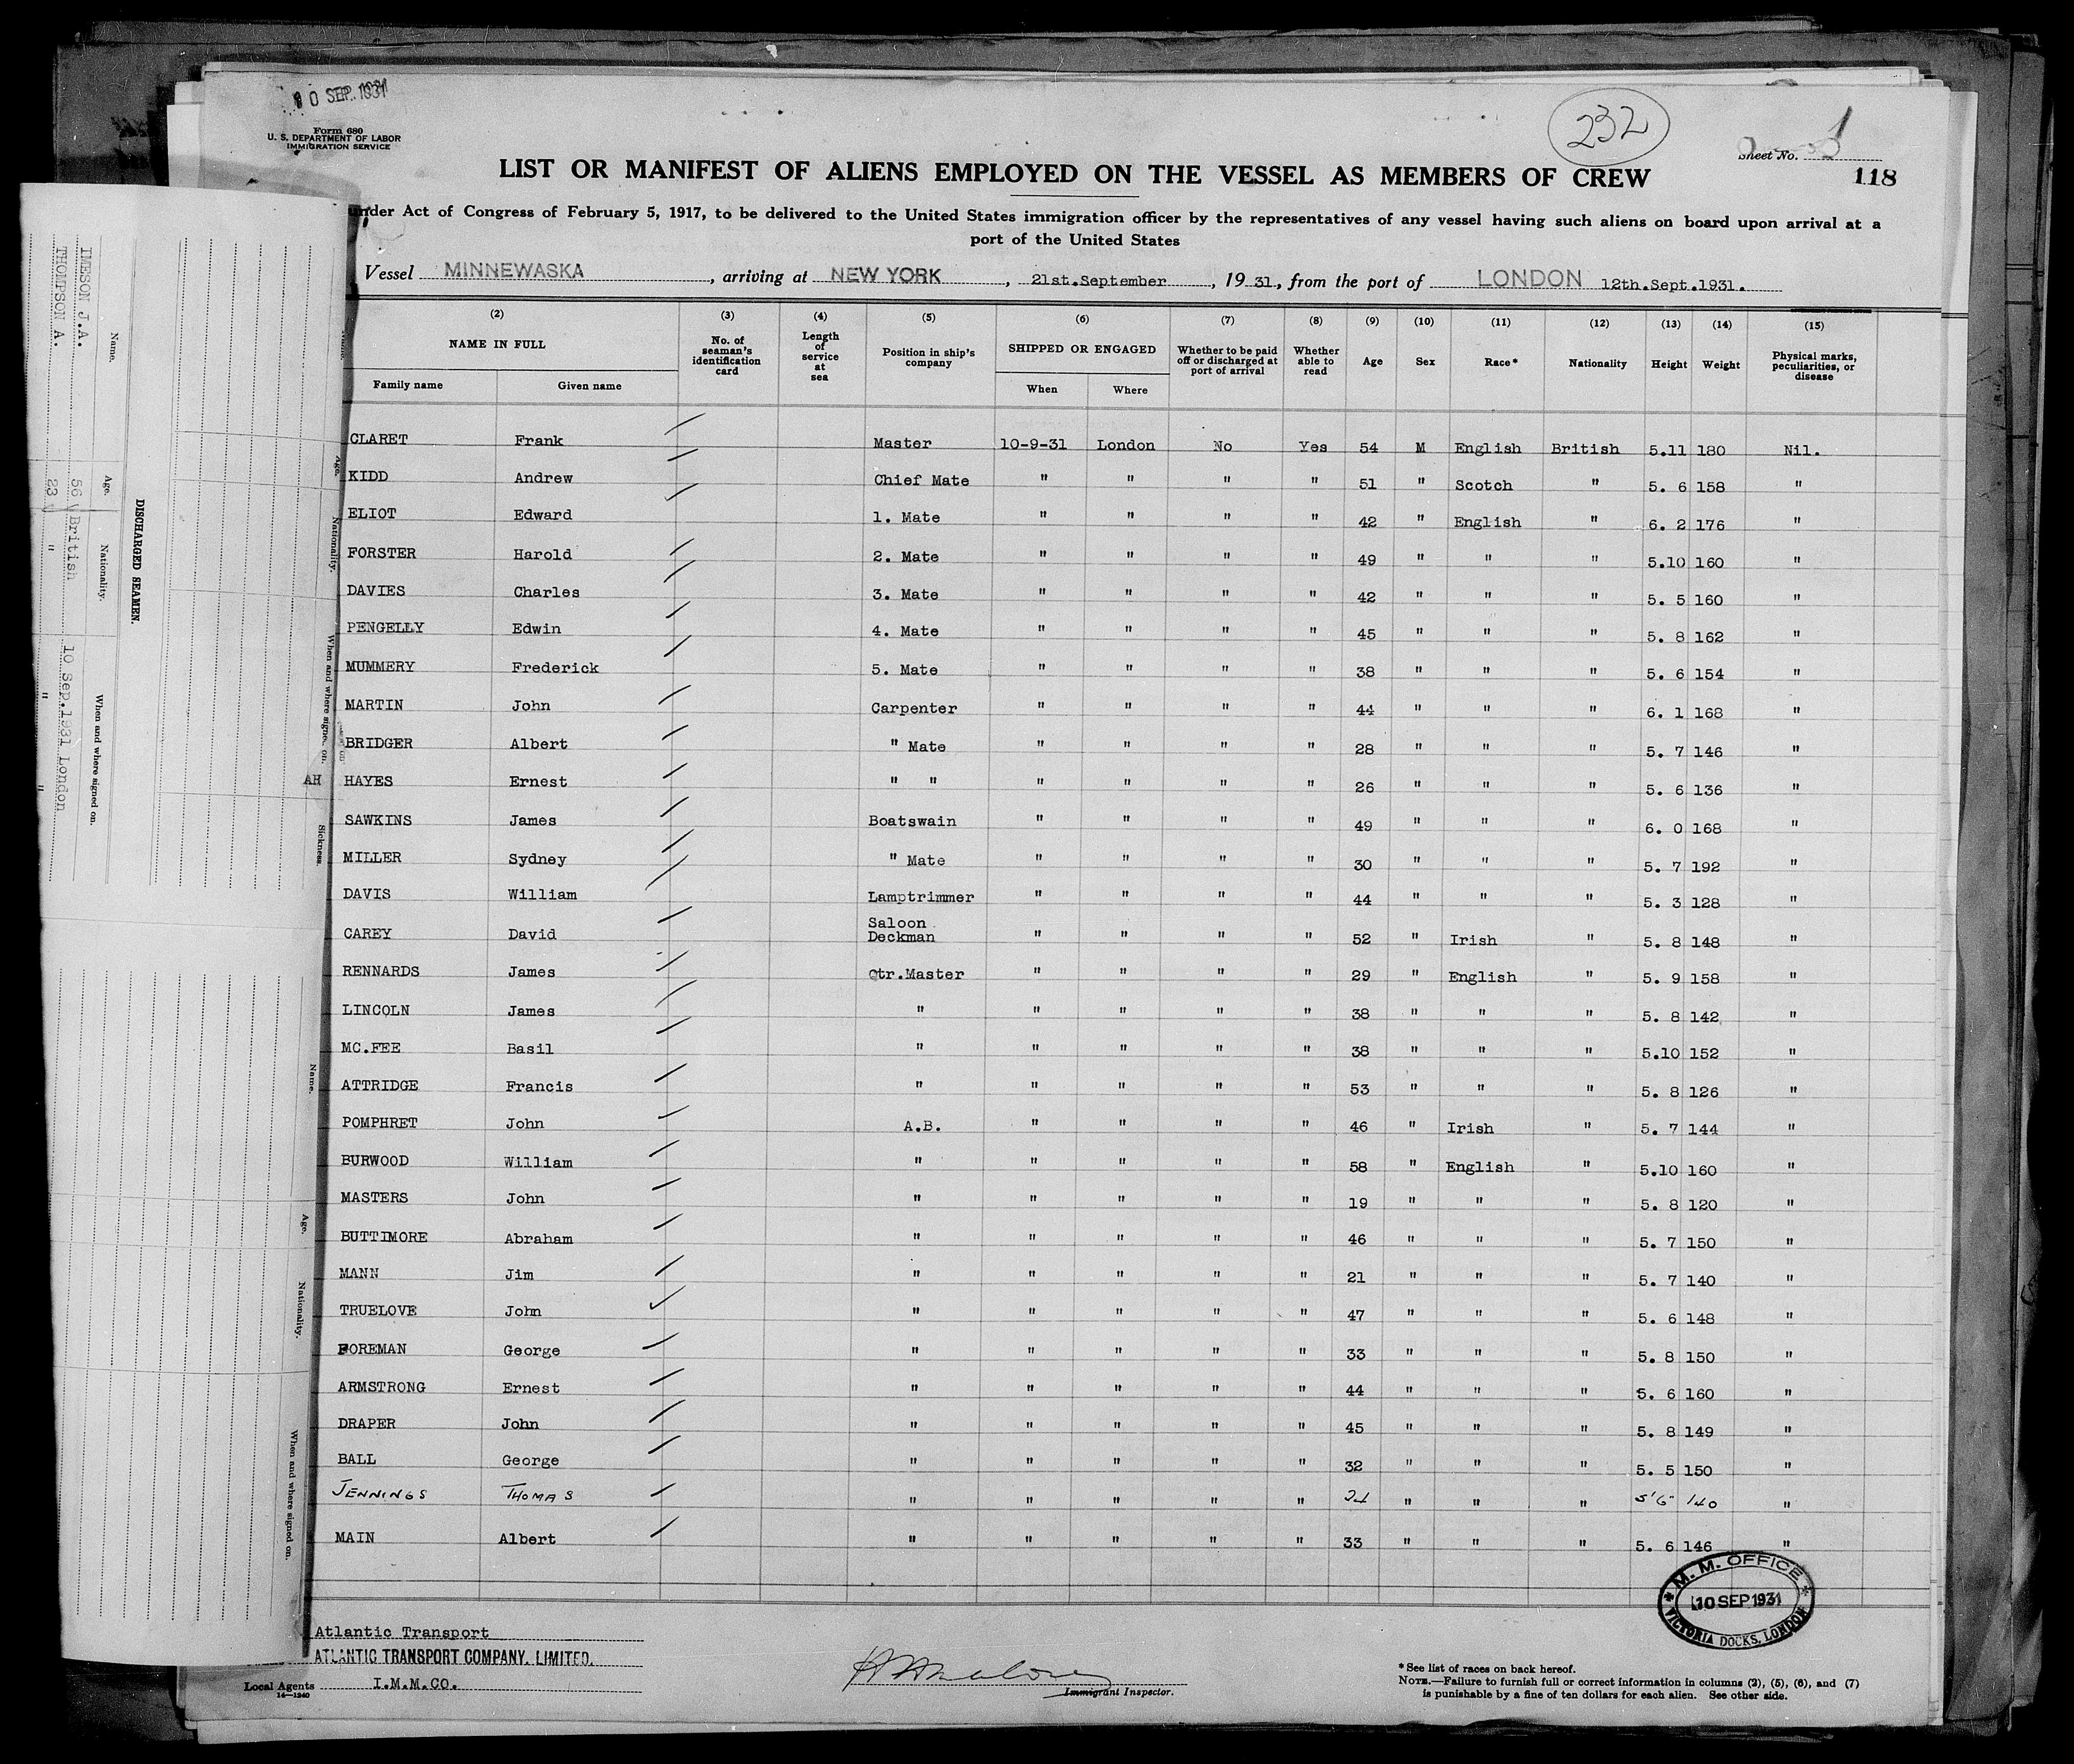 10 SEP. 1931
Form 680
U. S. DEPARTMENT OF LABOR
IMMIGRATION SERVICE
232
Sheet No. 1
LIST OR MANIFEST OF ALIENS EMPLOYED ON THE VESSEL AS MEMBERS OF CREW
118
under Act of Congress of February 5, 1917, to be delivered to the United States immigration officer by the representatives of any vessel having such aliens on board upon arrival at a
port of the United States
Vessel MINNEWASKA, arriving at NEW YORK, 21st.September, 19 31, from the port of LONDON 12th.Sept.1931.
(2) (3) (4) (5) (6) (7) (8) (9) (10) (11) (12) (13) (14) (15)
NAME IN FULL No. of seaman's identification card Length of service at sea Position in ship's company SHIPPED OR ENGAGED Whether to be paid off or discharged at port of arrival Whether able to read Age Sex Race* Nationality Height Weight Physical marks, peculiarities, or disease
Family name Given name When Where
CLARET Frank Master 10-9-31 London No Yes 54 M English British 5.11 180 Nil.
KIDD Andrew Chief Mate " " " " 51 " Scotch " 5. 6 158 "
ELIOT Edward 1. Mate " " " " 42 " English " 6. 2 176 "
FORSTER Harold 2. Mate " " " " 49 " " " 5.10 160 "
DAVIES Charles 3. Mate " " " " 42 " " " 5. 5 160 "
PENGELLY Edwin 4. Mate " " " " 45 " " " 5. 8 162 "
MUMMERY Frederick 5. Mate " " " " 38 " " " 5. 6 154 "
MARTIN John Carpenter " " " " 44 " " " 6. 1 168 "
BRIDGER Albert " Mate " " " " 28 " " " 5. 7 146 "
AH HAYES Ernest " " " " " " 26 " " " 5. 6 136 "
SAWKINS James Boatswain " " " " 49 " " " 6. 0 168 "
MILLER Sydney " Mate " " " " 30 " " " 5. 7 192 "
DAVIS William Lamptrimmer " " " " 44 " " " 5. 3 128 "
CAREY David Saloon Deckman " " " " 52 " Irish " 5. 8 148 "
RENNARDS James Qtr.Master " " " " 29 " English " 5. 9 158 "
LINCOLN James " " " " " 38 " " " 5. 8 142 "
MC.FEE Basil " " " " " 38 " " " 5.10 152 "
ATTRIDGE Francis " " " " " 53 " " " 5. 8 126 "
POMPHRET John A.B. " " " " 46 " Irish " 5. 7 144 "
BURWOOD William " " " " " 58 " English " 5.10 160 "
MASTERS John " " " " " 19 " " " 5. 8 120 "
BUTTIMORE Abraham " " " " " 46 " " " 5. 7 150 "
MANN Jim " " " " " 21 " " " 5. 7 140 "
TRUELOVE John " " " " " 47 " " " 5. 6 148 "
FOREMAN George " " " " " 33 " " " 5. 8 150 "
ARMSTRONG Ernest " " " " " 44 " " " 5. 6 160 "
DRAPER John " " " " " 45 " " " 5. 8 149 "
BALL George " " " " " 32 " " " 5. 5 150 "
JENNINGS THOMAS " " " " " " " " 5'6" 140 "
MAIN Albert " " " " " 33 " " " 5. 6 146 "
M. M. OFFICE
10 SEP 1931
VICTORIA DOCKS, LONDON
Atlantic Transport
ATLANTIC TRANSPORT COMPANY, LIMITED.
Local Agents I.M.M.CO.
14—1240
Immigrant Inspector.
* See list of races on back hereof.
NOTE.—Failure to furnish full or correct information in columns (2), (5), (6), and (7)
is punishable by a fine of ten dollars for each alien. See other side.
DISCHARGED SEAMEN.
Name. Age. Nationality. When and where signed on.
IMESON J.A. 56 British 10 Sep.1931 London
THOMPSON A. 23 " " "
Age. Nationality. When and where signed on. Sickness.
Name. Age. Nationality. When and where signed on.